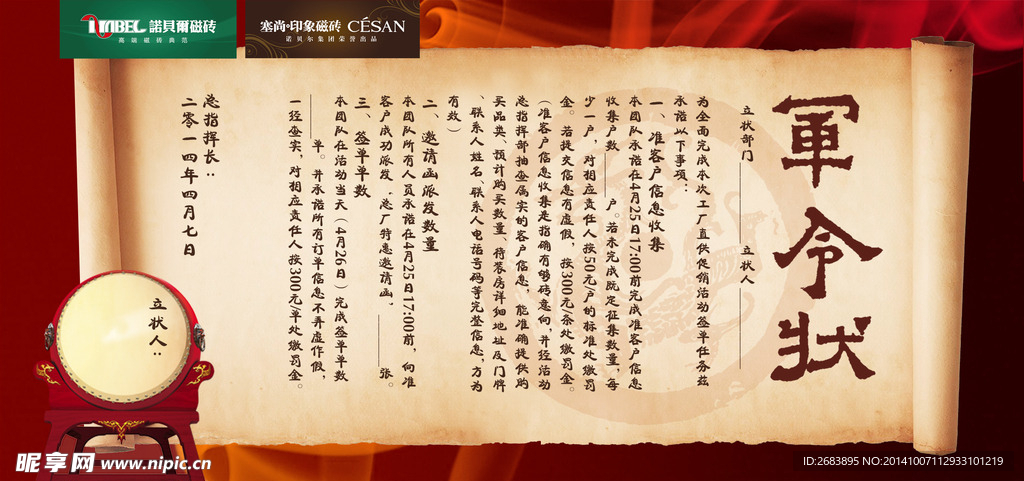 NABEL 諾貝爾磁砖
高端磁砖典范
塞尚·印象磁砖 CÉSAN
诺贝尔集团荣誉出品
軍令状
立状部门 立状人
为全面完成本次工厂直供促销活动签单任务兹
承诺以下事项：
一、准客户信息收集
本团队承诺在4月25日17:00前完成准客户信息
收集户数 户。若未完成既定征集数量，每
少一户，对相应责任人按50元/户的标准处缴罚
金。若提交信息有虚假，按300元/条处缴罚金。
（准客户信息收集是指确有够砖意向，并经活动
总指挥部抽查属实的客户信息，能准确提供购
买品类、预计购买数量、待装房详细地址及门牌
、联系人姓名、联系人电话号码等完整信息，方为
有效）
二、邀请函派发数量
本团队所有人员承诺在4月25日17:00前，向准
客户成功派发"总厂特惠邀请函" 张。
三、签单单数
本团队在活动当天（4月26日）完成签单单数
单。并承诺所有订单信息不弄虚作假，
一经查实，对相应责任人按300元/单处缴罚金。
总指挥长：
二零一四年四月七日
立状人：
昵享网 www.nipic.cn
ID:2683895 NO:20141007112933101219